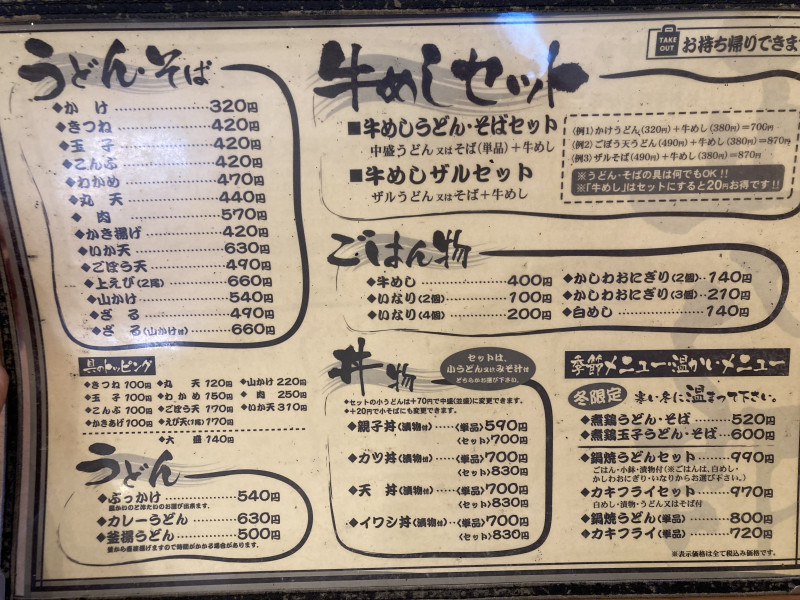 うどん・そば
◆かけ……320円
◆きつね……420円
◆玉子……420円
◆こんぶ……420円
◆わかめ……470円
◆丸天……440円
◆肉……570円
◆かき揚げ……420円
◆いか天……630円
◆ごぼう天……490円
◆上えび(2尾)……660円
◆山かけ……540円
◆ざる……490円
◆ざる(山かけ付)……660円
具のトッピング
◆きつね 100円 ◆丸天 120円 ◆山かけ 220円
◆玉子 100円 ◆わかめ 150円 ◆肉 250円
◆こんぶ 100円 ◆ごぼう天 170円 ◆いか天 310円
◆かきあげ 100円 ◆えび天(1尾) 170円
◆大盛 140円
うどん
◆ぶっかけ……540円
温かいのと冷たいのお選び出来ます。
◆カレーうどん……630円
◆釜揚うどん……500円
釜から直接揚げますので時間がかかる場合があります。
TAKE OUT お持ち帰りできま
牛めしセット
■牛めしうどん・そばセット
中盛うどん又はそば(単品)+牛めし
■牛めしザルセット
ザルうどん又はそば+牛めし
(例1)かけうどん(320円)+牛めし(380円)=700円
(例2)ごぼう天うどん(490円)+牛めし(380円)=870円
(例3)ザルそば(490円)+牛めし(380円)=870円
※うどん・そばの具は何でもOK!!
※「牛めし」はセットにすると20円お得です!!
ごはん物
◆牛めし……400円
◆いなり(2個)……100円
◆いなり(4個)……200円
◆かしわおにぎり(2個)…140円
◆かしわおにぎり(3個)…210円
◆白めし……140円
丼物
セットは、
小うどん又はみそ汁付
どちらかお選び下さい。
◆セットの小うどんは+70円で中盛(並盛)に変更できます。
◆+20円で小そばにも変更できます。
◆親子丼(漬物付)……(単品)590円
(セット)700円
◆カツ丼(漬物付)……(単品)700円
(セット)830円
◆天丼(漬物付)……(単品)700円
(セット)830円
◆イワシ丼(漬物付)……(単品)700円
(セット)830円
季節メニュー・温かいメニュー
冬限定 寒い冬に温まって下さい。
◆煮鶏うどん・そば……520円
◆煮鶏玉子うどん・そば…600円
◆鍋焼うどんセット……990円
ごはん・小鉢・漬物付(※ごはんは、白めし・
かしわおにぎり・いなりからお選び下さい。)
◆カキフライセット……970円
白めし・漬物・うどん又はそば付
◆鍋焼うどん(単品)……800円
◆カキフライ(単品)……720円
※表示価格は全て税込み価格です。